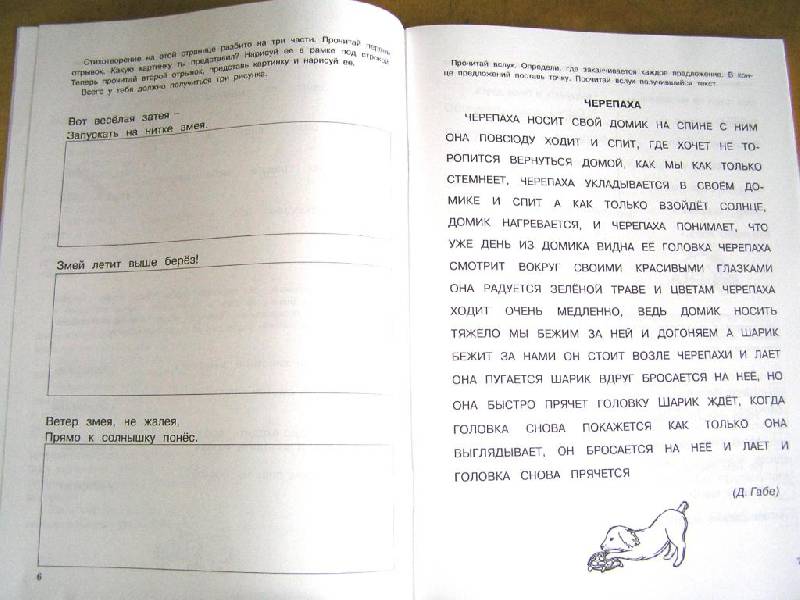 Стихотворение на этой странице разбито на три части. Прочитай первый
отрывок. Какую картинку ты представил? Нарисуй её в рамке под строкой.
Теперь прочитай второй отрывок, представь картинку и нарисуй её.
Всего у тебя должно получиться три рисунка.
Вот весёлая затея –
Запускать на нитке змея.
Змей летит выше берёз!
Ветер змея, не жалея,
Прямо к солнышку понёс.
6
Прочитай вслух. Определи, где заканчивается каждое предложение. В кон-
це предложений поставь точку. Прочитай вслух получившийся текст.
ЧЕРЕПАХА
ЧЕРЕПАХА НОСИТ СВОЙ ДОМИК НА СПИНЕ С НИМ
ОНА ПОВСЮДУ ХОДИТ И СПИТ, ГДЕ ХОЧЕТ НЕ ТО-
РОПИТСЯ ВЕРНУТЬСЯ ДОМОЙ, КАК МЫ КАК ТОЛЬКО
СТЕМНЕЕТ, ЧЕРЕПАХА УКЛАДЫВАЕТСЯ В СВОЁМ ДО-
МИКЕ И СПИТ А КАК ТОЛЬКО ВЗОЙДЁТ СОЛНЦЕ,
ДОМИК НАГРЕВАЕТСЯ, И ЧЕРЕПАХА ПОНИМАЕТ, ЧТО
УЖЕ ДЕНЬ ИЗ ДОМИКА ВИДНА ЕЁ ГОЛОВКА ЧЕРЕПАХА
СМОТРИТ ВОКРУГ СВОИМИ КРАСИВЫМИ ГЛАЗКАМИ
ОНА РАДУЕТСЯ ЗЕЛЁНОЙ ТРАВЕ И ЦВЕТАМ ЧЕРЕПАХА
ХОДИТ ОЧЕНЬ МЕДЛЕННО, ВЕДЬ ДОМИК НОСИТЬ
ТЯЖЕЛО МЫ БЕЖИМ ЗА НЕЙ И ДОГОНЯЕМ А ШАРИК
БЕЖИТ ЗА НАМИ ОН СТОИТ ВОЗЛЕ ЧЕРЕПАХИ И ЛАЕТ
ОНА ПУГАЕТСЯ ШАРИК ВДРУГ БРОСАЕТСЯ НА НЕЁ, НО
ОНА БЫСТРО ПРЯЧЕТ ГОЛОВКУ ШАРИК ЖДЁТ, КОГДА
ГОЛОВКА СНОВА ПОКАЖЕТСЯ КАК ТОЛЬКО ОНА
ВЫГЛЯДЫВАЕТ, ОН БРОСАЕТСЯ НА НЕЁ И ЛАЕТ И
ГОЛОВКА СНОВА ПРЯЧЕТСЯ
(Д. Габе)